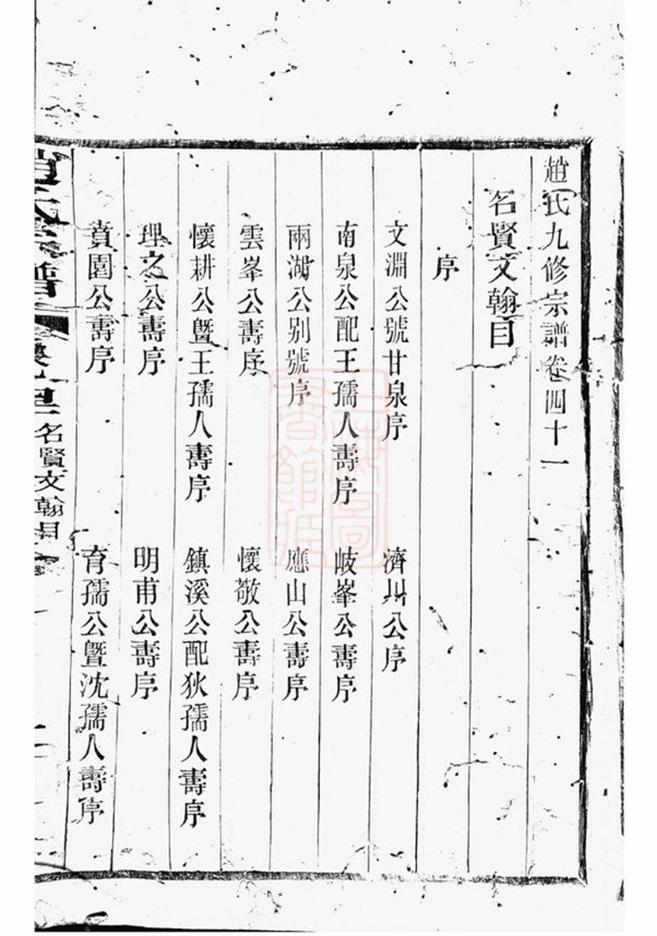 趙氏九修宗譜卷四十一
名賢文翰目
序
文淵公號甘泉序 濟川公序
南泉公配王孺人壽序 岐峯公壽序
兩湖公别號序 應山公壽序
雲峯公壽序 懷敬公壽序
懷耕公暨王孺人壽序 鎮溪公配狄孺人壽序
理之公壽序 明甫公壽序
蕡園公壽序 育孺公暨沈孺人壽序
趙氏宗譜 名賢文翰目